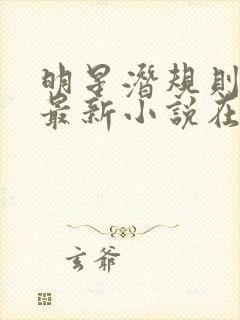 明星潛規則
最新小說在
玄爺